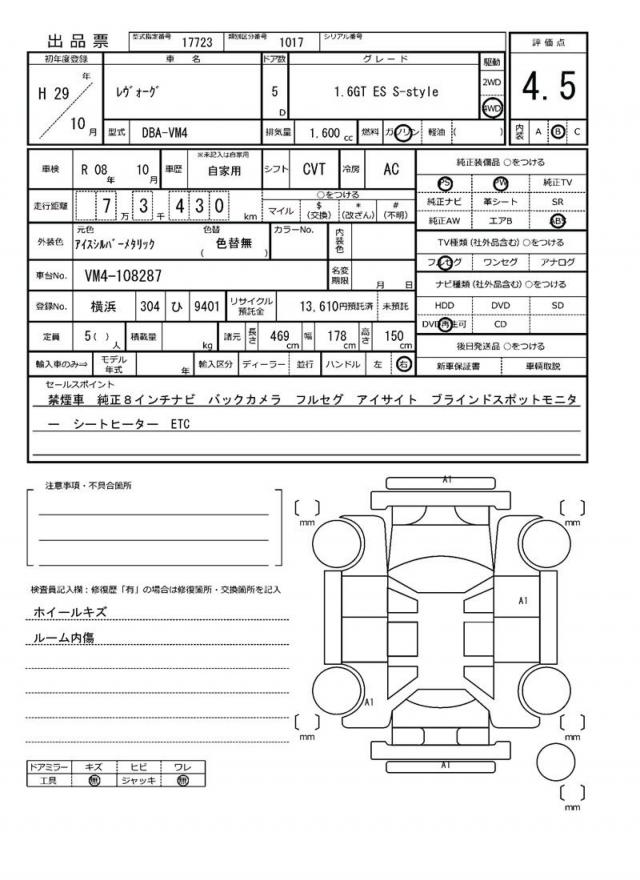 出品票 型式指定番号 17723 類別区分番号 1017 シリアル番号
初年度登録 車名 ドア数 グレード 駆動 評価点
H 29 年 10 月 レヴォーグ 5 D 1.6GT ES S-style 2WD 4WD 4.5
型式 DBA-VM4 排気量 1.600 cc 燃料 ガソリン 軽油 ( ) 内装 A B C
車検 R 08 年 10 月 車歴 ※未記入は自家用 自家用 シフト CVT 冷房 AC
純正装備品 ○をつける
PS PW 純正TV
純正ナビ 革シート SR
純正AW エアB ABS
走行距離 7 万 3 千 430 km ○をつける
マイル $ (交換) * (改ざん) # (不明)
TV種類(社外品含む)○をつける
フルセグ ワンセグ アナログ
外装色 元色 アイスシルバーメタリック 色替 ( 色替無 ) カラーNo. 内装色
車台No. VM4-108287 名変期限 月 日
ナビ種類(社外品含む)○をつける
HDD DVD SD
DVD再生可 CD
登録No. 横浜 304 ひ 9401 リサイクル預託金 13,610円預託済 未預託
定員 5( ) 人 積載量 kg 諸元 長さ 469 cm 幅 178 cm 高さ 150 cm
後日発送品 ○をつける
新車保証書 車輌取説
輸入車のみ⇒ モデル年式 年 輸入区分 ディーラー 並行 ハンドル 左 右
セールスポイント
禁煙車 純正8インチナビ バックカメラ フルセグ アイサイト ブラインドスポットモニタ
ー シートヒーター ETC
注意事項・不具合箇所
検査員記入欄:修復歴「有」の場合は修復箇所・交換箇所を記入
ホイールキズ
ルーム内傷
ドアミラー キズ ヒビ ワレ
工具 無 ジャッキ 無
A1
mm
mm
A1
A1
mm
mm
A1
mm